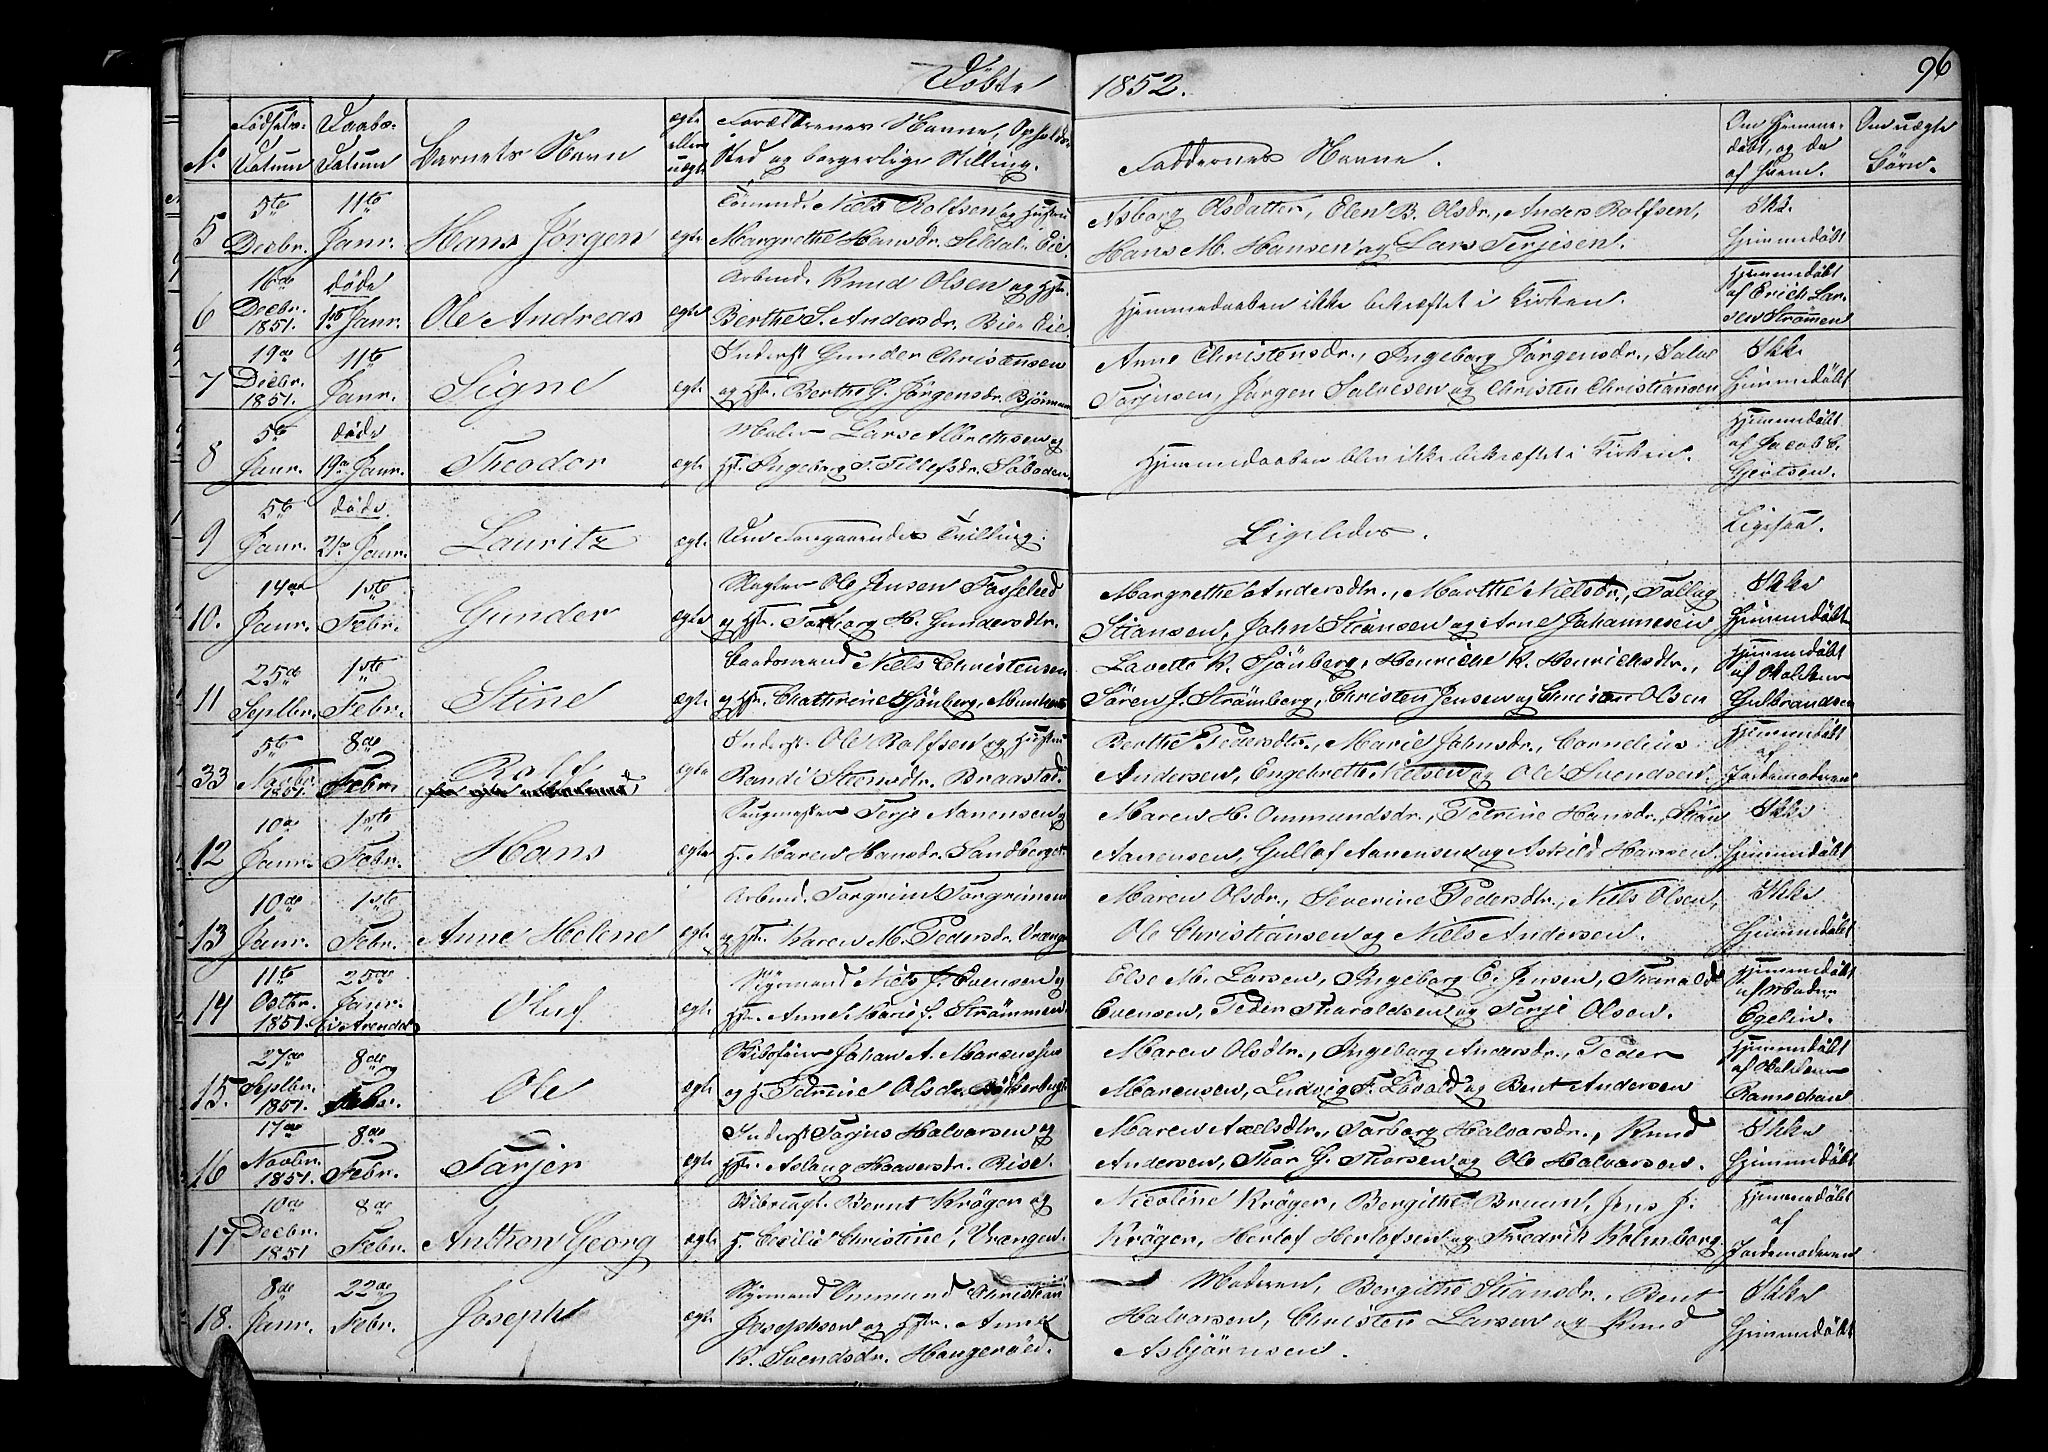 Døbte 1852. 96
No
Fødsels-
Datum
Daabs-
Datum
Barnets Navn
ægte
eller
uægte
Forældrenes Navne, Opholds-
Sted og borgerlige Stilling.
Faddernes Navne.
Om Hjemme-
døbt, og da
af hvem.
Om uægte
Børn.
5
5te
Decbr.
11te
Janr.
Hans Jörgen
ægte
Tömmd. Niels Rolfsen og Hustru
Margrethe Hansdr. Seldal Eie.
Asborg Olsdatter, Elen B. Olsdr., Anders Rolfsen,
Hans M. Hansen og Lars Terjesen.
Ikke
Hjemmedöbt
6
16de
Decbr.
1851.
döde
1ste Janr.
Ole Andreas
ægte
Arbmd. Knud Olsen og Hstr.
Berthe S. Andersdr. Bie Eie
Hjemmedaaben ikke bekræftet i Kirken.
Hjemmedöbt
af Erich Lar-
sen Strømmen
7
19de
Decbr.
1851.
11te
Janr.
Signe
ægte
Inderst Gunder Christensen
og Hstr. Berthe G. Jörgensdr. Bjönnum
Anne Christensdr., Ingeborg Jörgensdr., Salve
Torjusen, Jørgen Salvesen og Christen Christiansen
Ikke
Hjemmedöbt
8
5te
Janr.
döde
19de Janr.
Theodor
ægte
Maler Lars Albrethsen og
Hst. Ingeborg T. Tellefsdr. Söboden
Hjemmedaaben blev ikke bekræftet i Kirken.
Hjemmedöbt
af Jacob C.
Gjertsen.
9
5te
Janr.
döde.
21de Janr.
Lauritz
ægte
Den Foregaaendes Tvilling.
Ligeledes.
Ligesaa.
10.
14de
Janr.
1ste
Febr.
Gunder
ægte
Slagter Ole Jensen
og Hstr. Torborg H. Gundersdtr.
Margrethe Andersdtr., Marthe Nielsdr., Tallag
Stiansen, John Stiansen og Arne Johannesen
Ikke
Hjemmedöbt
11
25de
Septbr.
1ste
Febr.
Stine
ægte
Baadsmand Niels Christensen
og Hstr. Chathrine Sjönberg,
Lavette K. Sjönberg, Henriche K. Henrichsdtr.,
Sören J. Strömberg, Christen Jensen og Christen Olsen
Hjemmedöbt
af Madam
Gulbrandsen
33
5te
Novbr.
1851.
8de
Febr.
Rolf
ægte
Inderst. Ole Rolfsen og Hustru
Randi Stensdtr. Braastad.
Berthe Pedersdtr., Marie Johnsdr., Cornelius
Andersen, Engebreth Nielsen og Ole Svendsen.
Hjemmedöbt
af
Jordemoderen
12
10de
Janr.
1ste
Febr.
Hans
ægte
Saugmester Terje Aanensen og
H. Maren Hansdr. Sandberget.
Maren H. Ommundsdr., Petrine Hansdr., Stian
Aanensen, Gullof Aanensen og Askild Hansen.
Ikke
Hjemmedöbt
13
10de
Janr.
1ste
Febr.
Anne Helene
ægte
Arbmd. Torgrim Torgrimsen
og Hstr. Karen M. Pedersdr. Vrænge
Maren Olsdr., Severine Pedersdtr., Niels Olsen,
Ole Christiansen og Niels Andersen.
Ikke
Hjemmedöbt
14
11te
Octbr.
1851.
25de
Janr.
i Arendal
Oluf
ægte
Styrmand Niels J. Evensen og
Hstr. Anne Marie f. Strømmen
Else M. Larsen, Ingeborg E. Jensen, Tharald
Evensen, Peder Tharaldsen og Terje Olsen.
Hjemmedöbt
af Madam
Egelin.
15.
27de
Septbr.
1851.
8de
Febr.
Ole
ægte
Skibsfører Johan A. Marcussen
og H. Petrine Olsdr.
Maren Olsdtr., Ingeborg Andersdr., Peder
Marcusen, Ludvig F. Lövold og Bent Andersen
Hjemmedöbt
af Madam
16
17de
Novbr.
1851.
8de
Febr.
Tarjer
ægte
Inderst Torjus Halvorsen og
Hstr. Aslaug Haaversdr. Rise.
Maren Axelsdtr., Torborg Halvorsdr., Knud
Andersen, Thor G. Thorsen og Ole Halvorsen.
Ikke
Hjemmedöbt
17
10de
Decbr.
1851
8de
Febr.
Anthon Georg
ægte
Skibsrugt. Bernt Kröger og
H. Cecilie Christine, Vrængen.
Nicoline Kröger, Bergithe Bruun, Jens J.
Kröger, Herlof Herlofsen og Fredrik Holmberg.
Hjemmedöbt
af
Jordemoderen
18.
8de
Janr.
22de
Febr.
Joseph
ægte
Styrmand Ommund Christian
Josephsen og Hstr. Anne
K. Svendsdr. Haugeröen.
Moderen, Bergithe Stiansdr., Bent
Halvorsen, Christen Larsen og Knud
Asbjörnsen.
Ikke
Hjemmedöbt